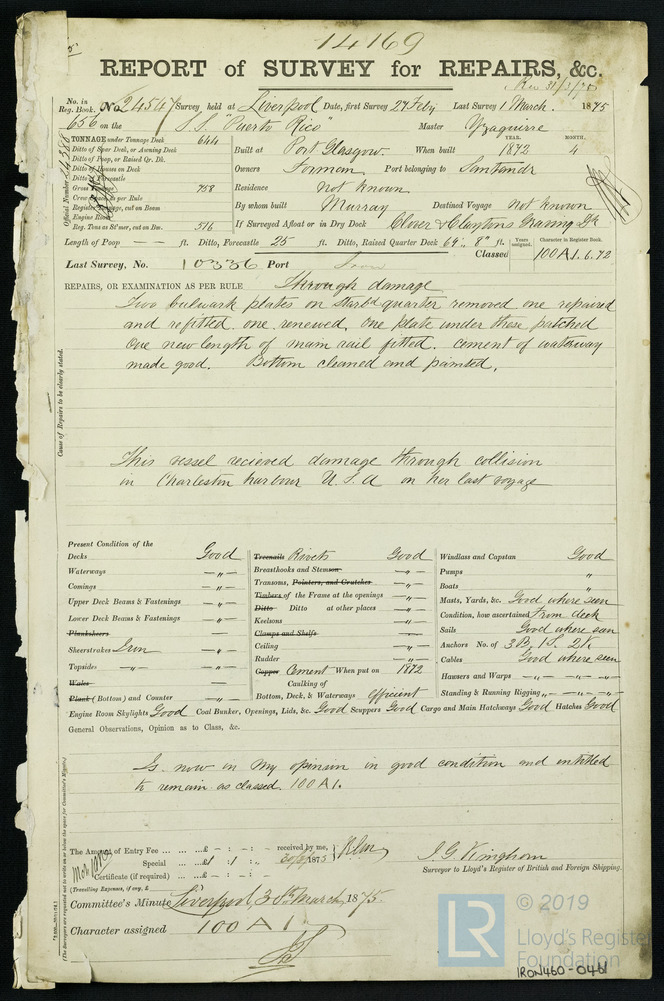 14169
REPORT of SURVEY for REPAIRS, &c.
No. in Reg. Book. No 24547 Survey held at Liverpool Date, first Survey 27 Feby Last Survey 1 March. 1875
656 on the S.S. "Puerto Rico" Master Yzaguirre
TONNAGE under Tonnage Deck 644 YEAR. MONTH.
Ditto of Spar Deck, or Awning Deck Built at Port Glasgow. When built 1872 4
Ditto of Poop, or Raised Qr. Dk.
Ditto of Houses on Deck Owners Forman Port belonging to Santandr
Ditto of Forecastle
Gross 758 Residence Not known
Crew as per Rule By whom built Murray Destined Voyage Not known
Register Tonnage, cut on Beam
Engine Room
Reg. Tons as St'mer, cut on Bm. 516 If Surveyed Afloat or in Dry Dock Clover & Claytons Graving Dk
Length of Poop — ft. Ditto, Forecastle 25 ft. Ditto, Raised Quarter Deck 69" 8" ft. Years assigned. Character in Register Book.
Classed 100A1. 6.72
Last Survey, No. 10336 Port
REPAIRS, OR EXAMINATION AS PER RULE Through damage
Two bulwark plates on starbd quarter removed one repaired
and refitted. one renewed, one plate under these patched
One new length of main rail fitted. cement of waterway
made good. Bottom cleaned and painted.
Cause of Repairs to be clearly stated.
This vessel recieved damage through collision
in Charleston harbour U.S.A on her last voyage
Present Condition of the
Decks Good Treenails Rivets Good Windlass and Capstan Good
Waterways —"— Breasthooks and Stemson —"— Pumps "
Comings —"— Transoms, Pointers, and Crutches —"— Boats "
Upper Deck Beams & Fastenings —"— Timbers of the Frame at the openings —"— Masts, Yards, &c. Good where seen
Lower Deck Beams & Fastenings —"— Ditto Ditto at other places —"— Condition, how ascertained From deck
Planksheers — Keelsons —"— Sails Good where seen
Sheerstrakes Iron —"— Clamps and Shelfs — Anchors No. of 3B, 1S, 2K.
Topsides —"— Ceiling —"— Cables Good where seen
Wales — Rudder —"— Hawsers and Warps —"—
Plank (Bottom) and Counter —"— Copper Cement When put on 1872 Standing & Running Rigging —"—
Caulking of Bottom, Deck, & Waterways Efficient
Engine Room Skylights Good Coal Bunker, Openings, Lids, &c. Good Scuppers Good Cargo and Main Hatchways Good Hatches Good
General Observations, Opinion as to Class, &c.
Is now in my opinion in good condition and entitled
to remain as classed 100A1.
The Amount of Entry Fee ... ... ...£ - : - : - received by me,
Special ... ...£1 : 1 : 1875
Certificate (if required) ... ... - : - : -
(Travelling Expenses, if any, £ )
J. G. Kinghorn
Surveyor to Lloyd's Register of British and Foreign Shipping.
Committee's Minute Liverpool 30th March 1875.
Character assigned 100A1
© 2019
LR
Lloyd's Register
Foundation
IRON460-0461